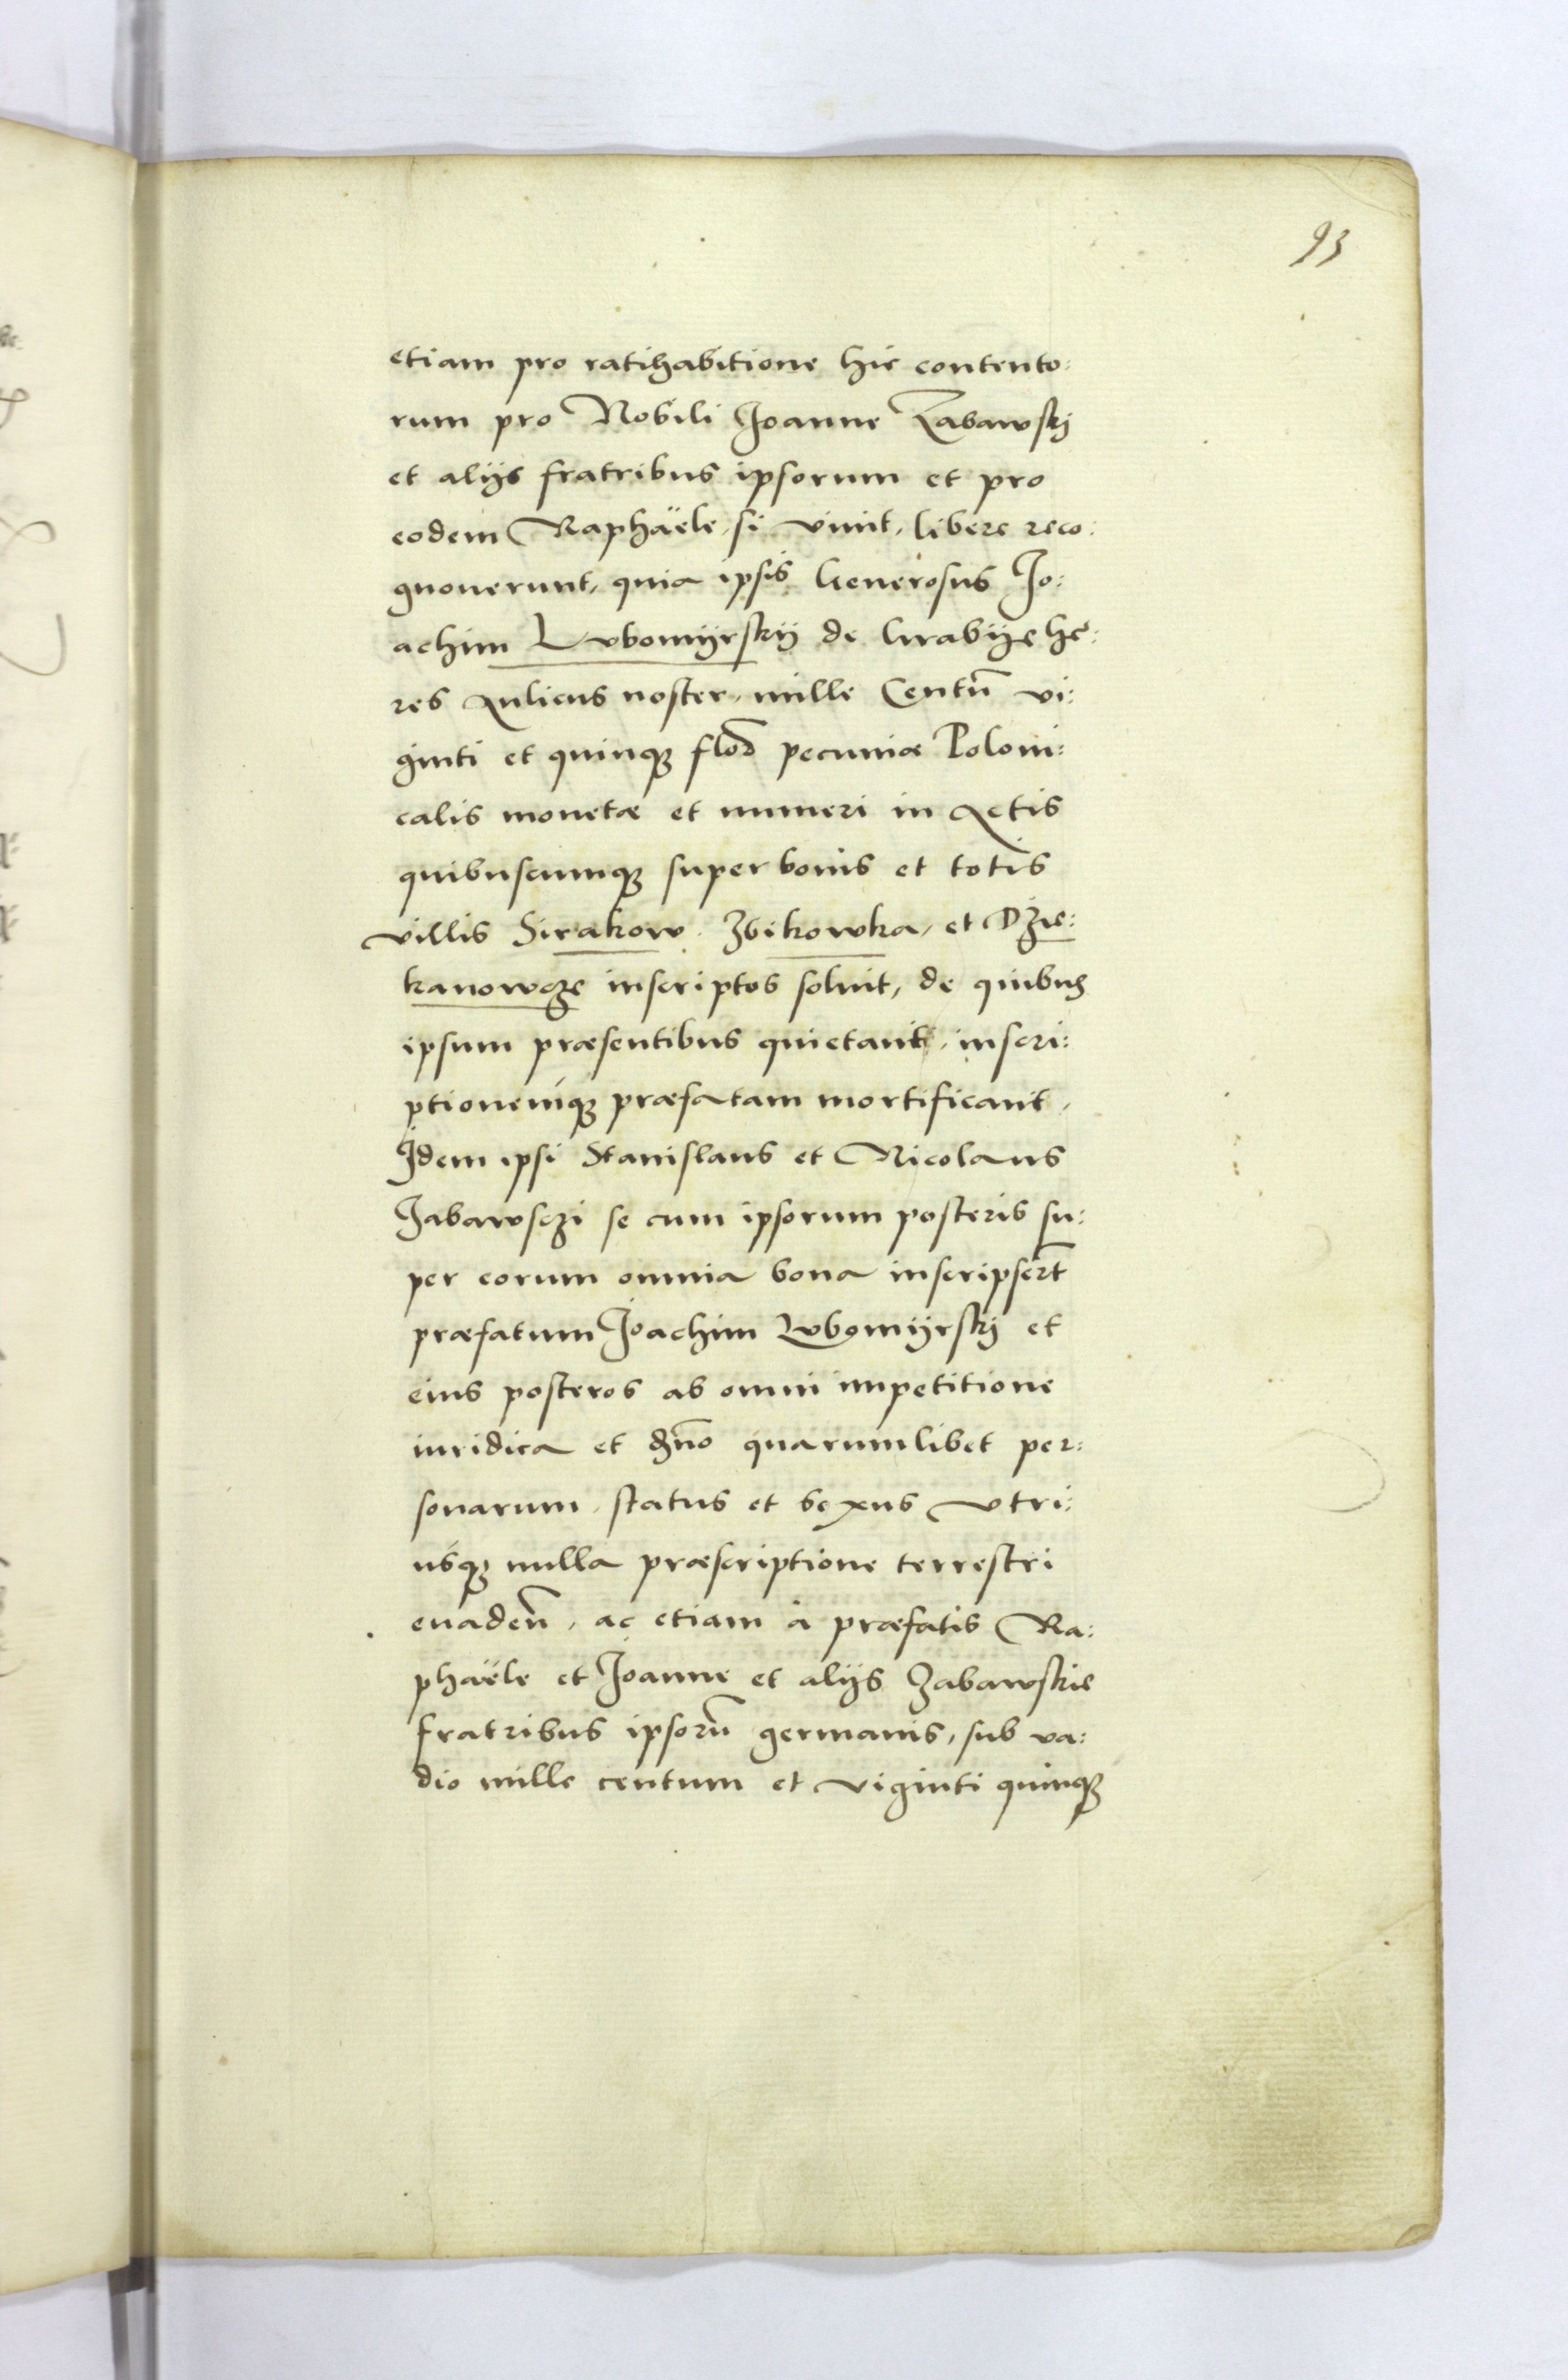 93
etiam pro ratihabitione hic contento:
rum pro Nobili Joanne Zabawskj
et alijs fratribus ipsorum et pro
eodem Raphäele, si viuit, libere reco:
gnouerunt, quia ipsis Generosus Jo:
achim Lvbomÿrskÿ de Grabÿe he:
res Aulicus noster, mille Centũ vi:
ginti et quinqꝫ pecuniæ Poloni:
calis monetæ et numeri in Actis
quibuscumqꝫ super bonis et totis
villis Sirakow, Zbikowka, et Dzie:
kanowcze inscriptos soluit, de quibus
ipsum præsentibus quietant, inscri:
ptionemqꝫ præfatam mortificant,
Idem ipsi Stanislaus et Nicolaus
Zabawsczi se cum ipsorum posteris su:
per eorum omnia bona inscripsert̃
præfatum Joachim Lvbomÿrskj et
eius posteros ab omni impetitione
iuridica et gñõ quarumlibet per:
sonarum, status et sexus vtri:
usqꝫ nulla præscriptione terrestri
euadeñ, ac etiam à præfatis Ra:
phäele et Joanne et alijs Zabawskie
fratribus ipsorũ germanis, sub va:
dio mille centum et viginti quinqꝫ